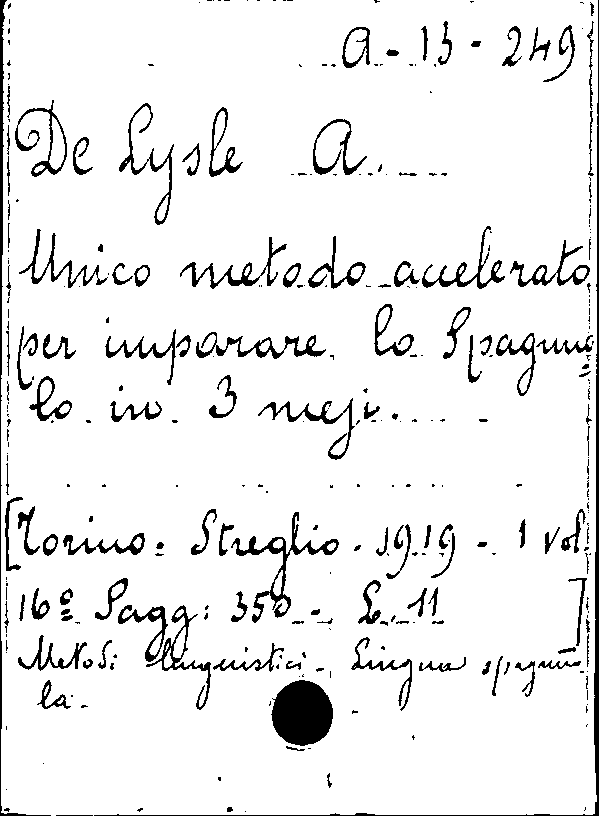 A - 13 - 249
De Lysle A.
Unico metodo accelerato
per imparare lo Spagnuo=
lo in 3 mesi.
[Torino = Streglio - 1919 - 1 vol.
16º Pagg: 350 - L. 11 ]
Metodi linguistici - Lingua spagnuo
la -